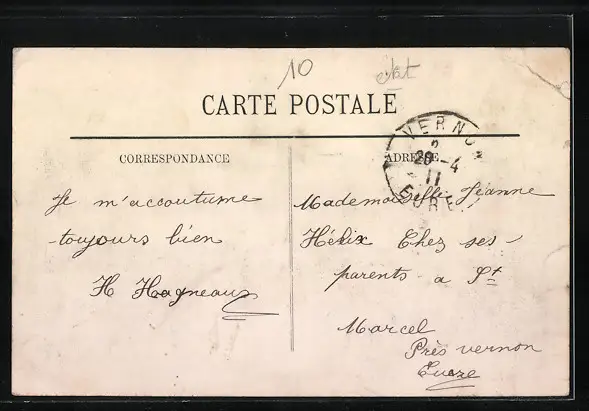 10
CARTE POSTALE
CORRESPONDANCE
ADRESSE
VERNON
20-4
11
EURE
Je m'accoutume
toujours bien
H Hagneaux
Mademoiselle Jeanne
Hélix Chez ses
parents a St
Marcel
Près vernon
Eure